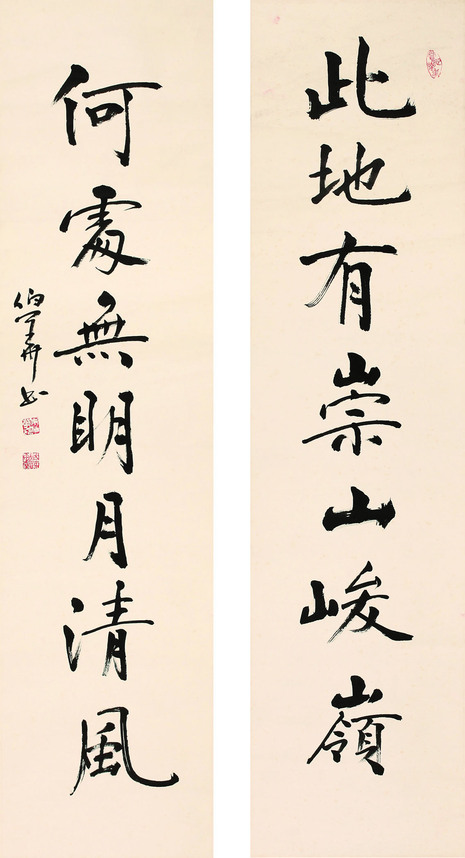 此地有崇山峻嶺
何處無明月清風